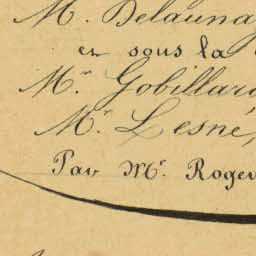 M. Delaunay
en sous la
Mr. Gobillard
Mr. Lesné,
Par Mr. Roger